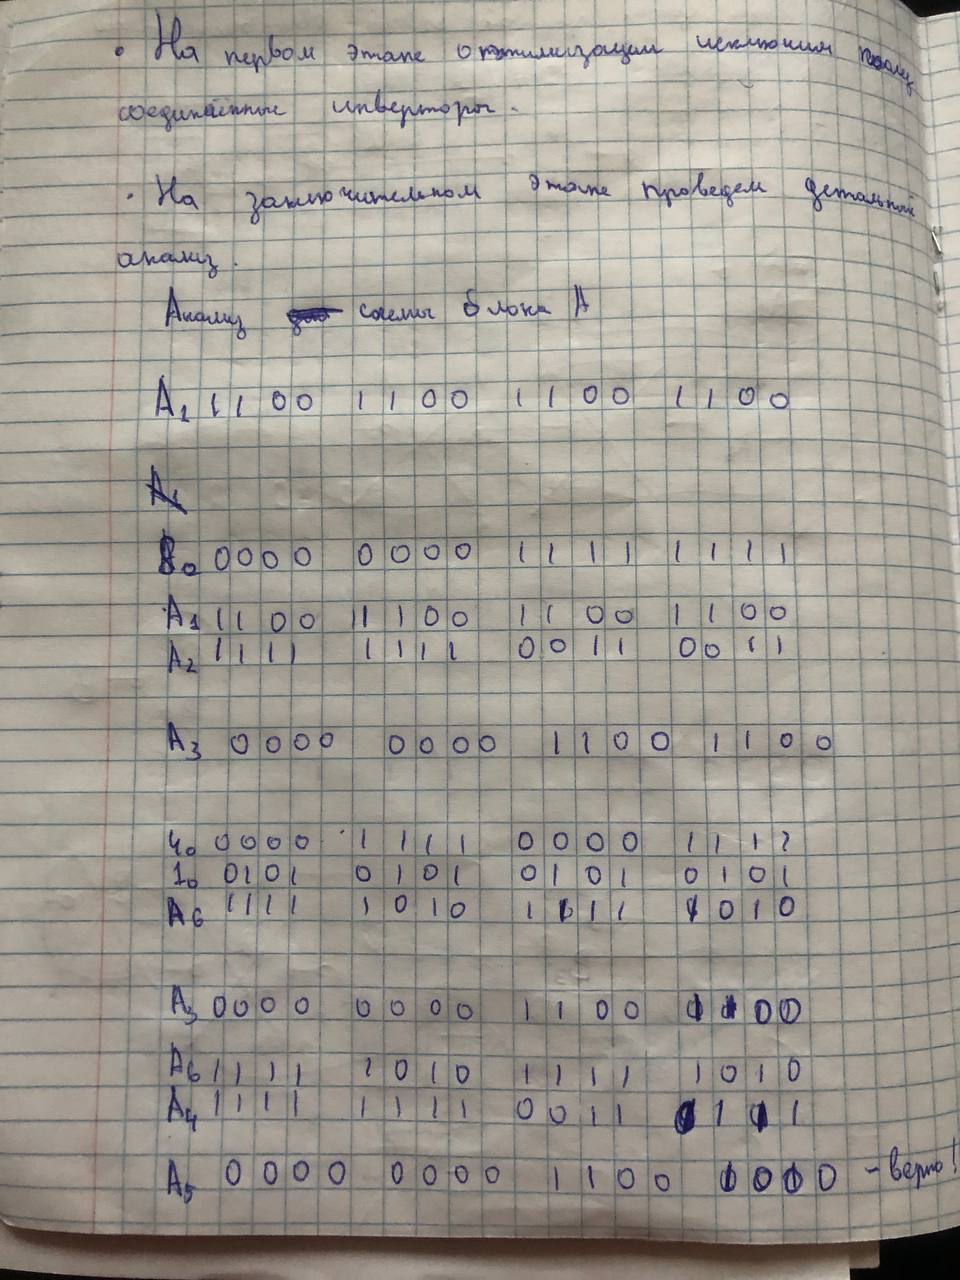 • На первом этапе оптимизации исключим
соединённые инверторы.
• На заключительном этапе проведем детальный
анализ.
Анализ схемы блока А
A₁ 1 1 0 0 1 1 0 0 1 1 0 0 1 1 0 0
A₁
8₀ 0 0 0 0 0 0 0 0 1 1 1 1 1 1 1 1
A₁ 1 1 0 0 1 1 0 0 1 1 0 0 1 1 0 0
A₂ 1 1 1 1 1 1 1 1 0 0 1 1 0 0 1 1
A₃ 0 0 0 0 0 0 0 0 1 1 0 0 1 1 0 0
4₀ 0 0 0 0 1 1 1 1 0 0 0 0 1 1 1 1
1₀ 0 1 0 1 0 1 0 1 0 1 0 1 0 1 0 1
A₆ 1 1 1 1 1 0 1 0 1 1 1 1 1 0 1 0
A₃ 0 0 0 0 0 0 0 0 1 1 0 0 1 1 0 0
A₆ 1 1 1 1 1 0 1 0 1 1 1 1 1 0 1 0
A₄ 1 1 1 1 1 1 1 1 0 0 1 1 0 1 1 1
A₅ 0 0 0 0 0 0 0 0 1 1 0 0 1 0 0 0 - верно!